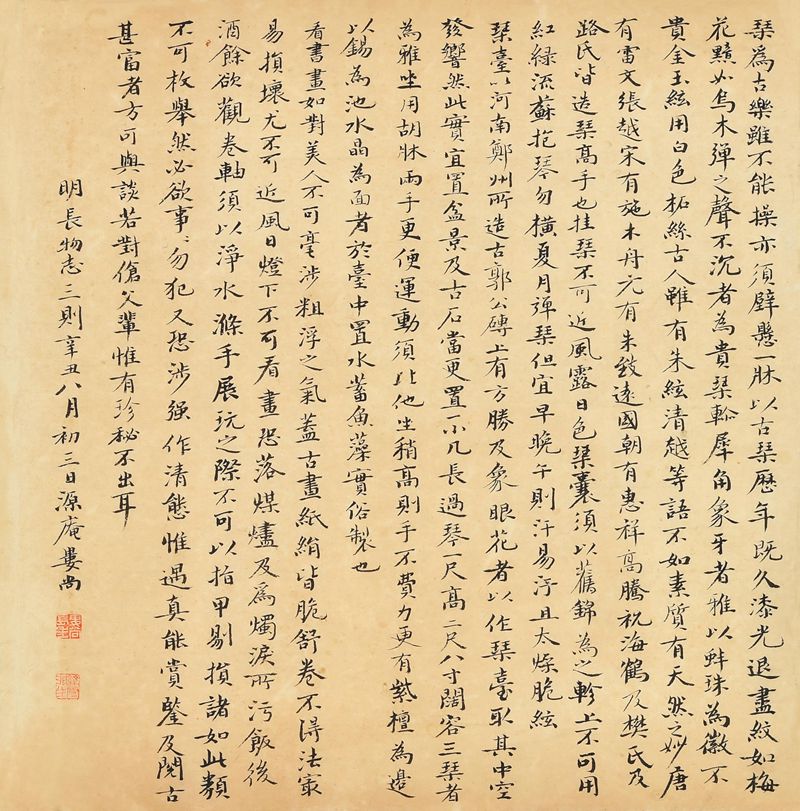 琹為古樂雖不能操亦須壁懸一牀以古琹歷年既久漆光退盡紋如梅
花黯如烏木彈之聲不沉者為貴琹軫犀角象牙者雅以蚌珠為徽不
貴金玉絃用白色柘絲古人雖有朱絃清越等語不如素質有天然之妙唐
有雷文張越宋有施木舟元有朱致遠國朝有惠祥高騰祝海鶴及樊氏及
路氏皆造琹高手也挂琹不可近風露日色琹囊須以舊錦為之軫上不可用
紅綠流蘇抱琴勿橫夏月彈琹但宜早晚午則汗易汙且太燥脆絃
琹臺以河南鄭州所造古郭公磚上有方勝及象眼花者以作琹臺取其中空
發響然此實宜置盆景及古石當更置一小几長過琴一尺高二尺八寸闊容三琹者
為雅坐用胡牀兩手更便運動須比他坐稍高則手不費力更有紫檀為邊
以錫為池水晶為面者於臺中置水蓄魚藻實俗製也
看書畫如對美人不可毫涉粗浮之氣蓋古畫紙絹皆脆舒卷不得法最
易損壞尤不可近風日燈下不可看畫恐落煤燼及爲燭淚所污飯後
酒餘欲觀卷軸須以淨水滌手展玩之際不可以指甲剔損諸如此類
不可枚舉然必欲事〻勿犯又恐涉强作清態惟遇真能賞鑒及閱古
甚富者方可與談若對傖父輩惟有珍秘不出耳
明長物志三則辛丑八月初三日源庵婁尚